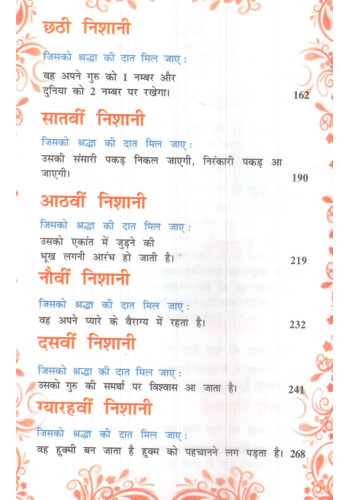 छठी निशानी
जिसको श्रद्धा की दात मिल जाए :
वह अपने गुरु को 1 नम्बर और
दुनिया को 2 नम्बर पर रखेगा।
162
सातवीं निशानी
जिसको श्रद्धा की दात मिल जाए :
उसकी संसारी पकड़ निकल जाएगी, निरंकारी पकड़ आ
जाएगी।
190
आठवीं निशानी
जिसको श्रद्धा की दात मिल जाए :
उसको एकांत में जुड़ने की
भूख लगनी आरंभ हो जाती है।
219
नौवीं निशानी
जिसको श्रद्धा की दात मिल जाए :
वह अपने प्यारे के वैराग्य में रहता है।
232
दसवीं निशानी
जिसको श्रद्धा की दात मिल जाए :
उसको गुरु की समर्था पर विश्वास आ जाता है।
241
ग्यारहवीं निशानी
जिसको श्रद्धा की दात मिल जाए :
वह हुक्मी बन जाता है हुक्म को पहचानने लग पड़ता है। 268